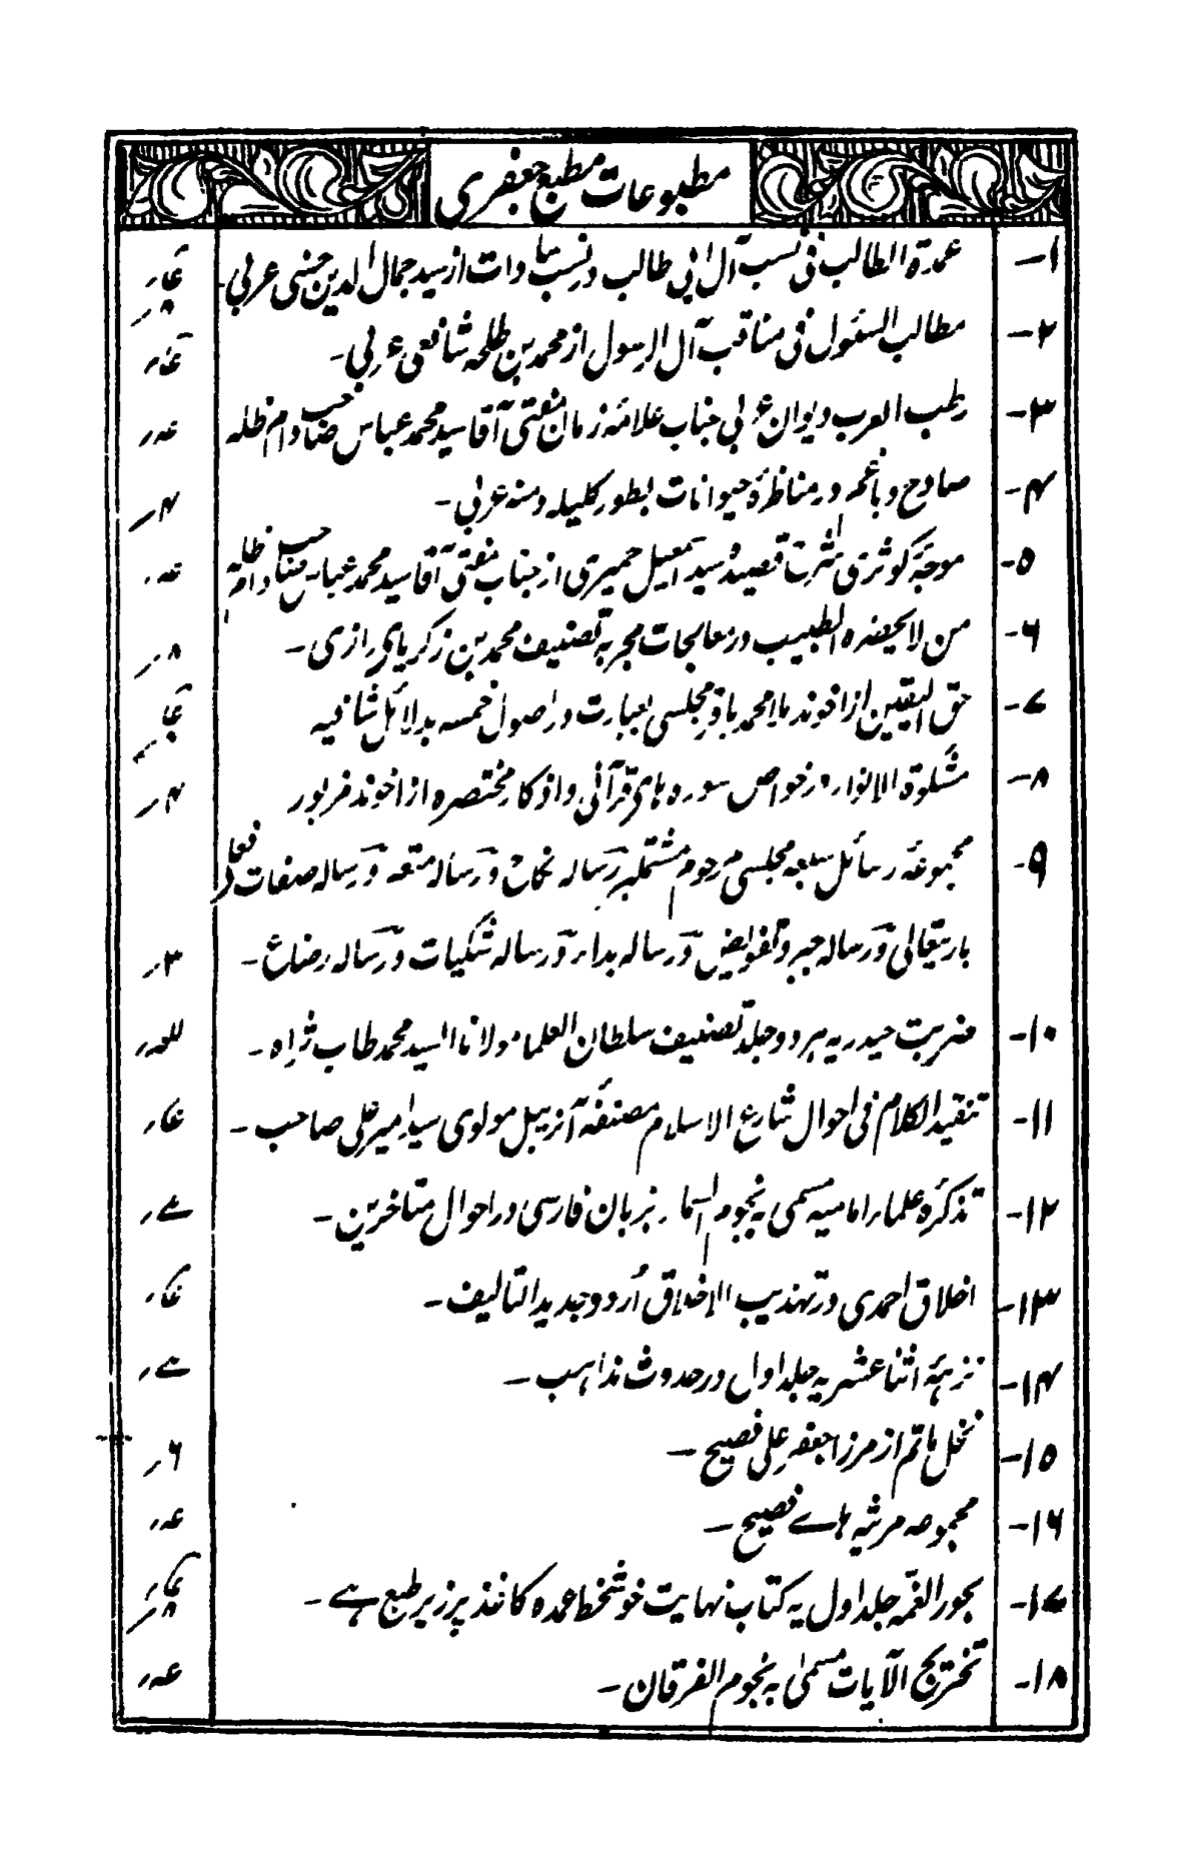 مطبوعات مطبع جعفری
۱- عمدة الطالب فی نسب آل ابی طالب در نسب سادات از سید جمال الدین حسنی عربی-
۲- مطالب السئول فی مناقب آل الرسول از محمد بن طلحہ شافعی عربی-
۳- رطب العرب دیوان عربی جناب علامۂ زمان مفتی آقا سید محمد عباس صاحب دام ظلہ عہ ر
۴- صادح و باغم در مناظرۂ حیوانات بطور کلیلہ دمنہ عربی- ۴ ر
۵- موجۂ کوثری شرح قصیدۂ سید اسمعیل حمیری از جناب مفتی آقا سید محمد عباس صاحب دام ظلہ عہ ر
۶- من لا یحضرہ الطبیب در معالجات مجربہ تصنیف محمد بن زکریای رازی- ۸ ر
۷- حق الیقین از اخوند ملا محمد باقر مجلسی بعبارت در اصول خمسہ بدلائل شافیہ
۸- مشکوة الانوار در خواص سورہ ہای قرآنی و اذکار مختصرہ از اخوند مزبور ۴ ر
۹- مجموعۂ رسائل سبعہ مجلسی مرحوم مشتملبر رسالہ نکاح و رسالہ متعہ و رسالہ صفات فعل
باریتعالی و رسالہ جبر و تفویض و رسالہ بداء و رسالہ شکیات و رسالہ رضاع- ۳ ر
۱۰- ضربت حیدریہ ہر دو جلد تصنیف سلطان العلماء مولانا السید محمد طاب ثراہ- للعہ ر
۱۱- تنقید الکلام فی احوال شارع الاسلام مصنفۂ آنریبل مولوی سید امیر علی صاحب-
۱۲- تذکرہ علماء امامیہ مسمی بہ نجوم السماء بزبان فارسی در احوال متاخرین- ے ر
۱۳- اخلاق احمدی در تہذیب الاخلاق اُردو جدید التالیف-
۱۴- نزہۂ اثنا عشریہ جلد اول در حدوث مذاہب- ے ر
۱۵- نخل ماتم از مرزا جعفر علی فصیح- ۶ ر
۱۶- مجموعہ مرثیہ ہاے فصیح- عہ ر
۱۷- بحور الغمّہ جلد اول یہ کتاب نہایت خوشخط عمدہ کاغذ پر زیر طبع ہے-
۱۸- تخریج الآیات مسمیٰ بہ نجوم الفرقان- عہ ر